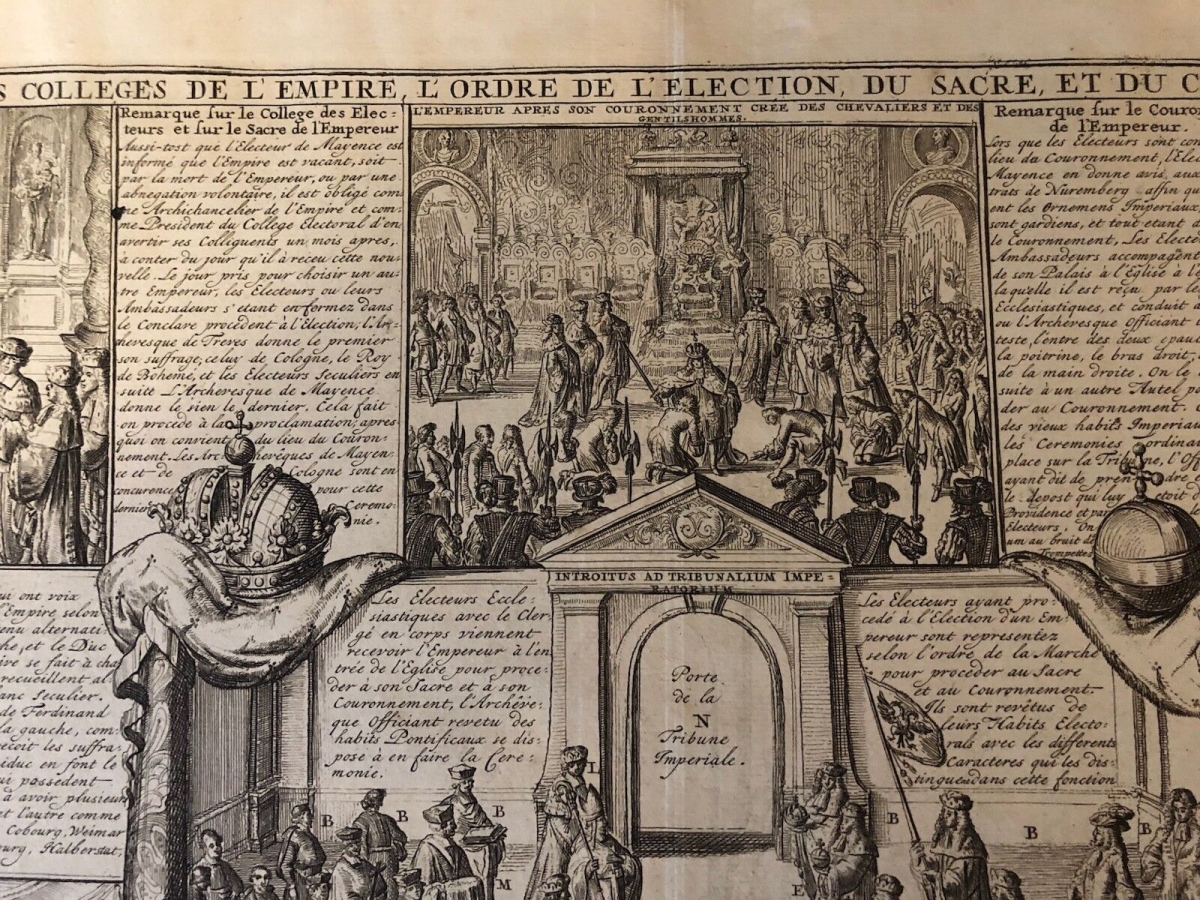 S COLLEGES DE L'EMPIRE, L'ORDRE DE L'ELECTION, DU SACRE, ET DU C
Remarque sur le College des Elec:
teurs et sur le Sacre de l'Empereur
Aussi-tost que l'Electeur de Mayence est
informé que l'Empire est vacant, soit
par la mort de l'Empereur, ou par une
abnegation volontaire, il est obligé com:
me Archichancelier de l'Empire et com:
me President du College Electoral d'en
avertir ses Colliguents un mois apres,
a conter du jour qu'il à receu cette nou:
velle. Le jour pris pour choisir un au:
tre Empereur, les Electeurs ou leurs
Ambassadeurs s'etant enformez dans
le Conclave procedent à l'Election, l'Ar:
cheresque de Treves donne le premier
son suffrage, celuy de Cologne, le Roy
de Boheme, et les Electeurs Seculiers en
suite L'Archeresque de Mayence
donne le sien le dernier. Cela fait
on procede à la proclamation, apres
quoi on convient du lieu du Couron:
nement. Les Archevêques de Mayen:
ce et de Cologne sont en
concurence pour cette
derniere Ceremo:
nie.
L'EMPEREUR APRES SON COURONNEMENT CRÉE DES CHEVALIERS ET DES
GENTILSHOMMES.
Remarque sur le Couron
de l'Empereur.
Lors que les Electeurs sont con
lieu du Couronnement, l'Elec
Mayence en donne avis aux
trats de Nuremberg affin qu
ent les Ornemens Imperiaux,
sont gardiens, et tout etant a
le Couronnement, Les Electe
Ambassadeurs accompagent
de son Palais à l'Eglise à l
laquelle il est reçu par le
Ecclesiastiques, et conduit
ou l'Archeresque Officiant
teste, l'entre des deux epau
la poitrine, le bras droit,
de la main droite. On le
suite à un autre Autel p
der au Couronnement.
des vieux habits Imperiau
les Ceremonies ordinai
place sur la Tribune, l'Off
ayant dit de prendre
le depost que luy etoit
Providence et par
Electeurs. On
um au bruit de
Trompettes
ui ont voix
l'Empire selon
enu alternati:
he, et le Duc
ive se fait à cha
recueillent al
anc Seculier.
de Ferdinand
la gauche, com
reçoit les suffra:
iduc en font le
ui possedent
à avoir plusieur
et l'autre comme
Cobourg, Weimar
ourg, Halberstat,
Les Electeurs Eccle:
siastiques avec le Cler:
gé en corps viennent
recevoir l'Empereur à l'en
trée de l'Eglise pour proce:
der à son Sacre et à son
Couronnement, l'Archêve:
que Officiant revetu des
habits Pontificaux se dis:
pose à en faire la Cere:
monie.
INTROITUS AD TRIBUNALIUM IMPE:
RATORIUM
Porte
de la
N
Tribune
Imperiale.
Les Electeurs ayant pro:
cedé à l'Election d'un Em:
pereur sont representez
selon l'ordre de la Marche
pour procéder au Sacre
et au Couronnement
Ils sont revêtus de
leurs Habits Electo:
rals avec les differents
Caracteres qui les dis:
tinguendans cette fonction
L
B B B B B B
M E